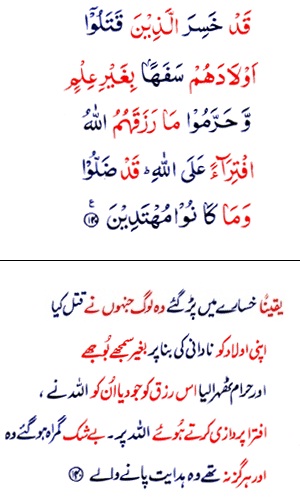 قَدْ خَسِرَ الَّذِيْنَ قَتَلُوْۤا
اَوْلَادَهُمْ سَفَهًۢا بِغَيْرِ عِلْمٍ
وَّ حَرَّمُوْا مَا رَزَقَهُمُ اللّٰهُ
افْتِرَآءً عَلَى اللّٰهِ ؕ قَدْ ضَلُّوْا
وَمَا كَانُوْا مُهْتَدِيْنَ ۧ ﴿۱۴۰﴾
یقیناً خسارے میں پڑ گئے وہ لوگ جنہوں نے قتل کیا
اپنی اولاد کو نادانی کی بنا پر بغیر سمجھے بُوجھے
اور حرام ٹھہرا لیا اس رزق کو جو دیا اُن کو اللہ نے ،
افترا پردازی کرتے ہُوئے اللہ پر۔ بے شک گمراہ ہو گئے وہ
اور ہرگز نہ تھے وہ ہدایت پانے والے ﴿۱۴۰﴾